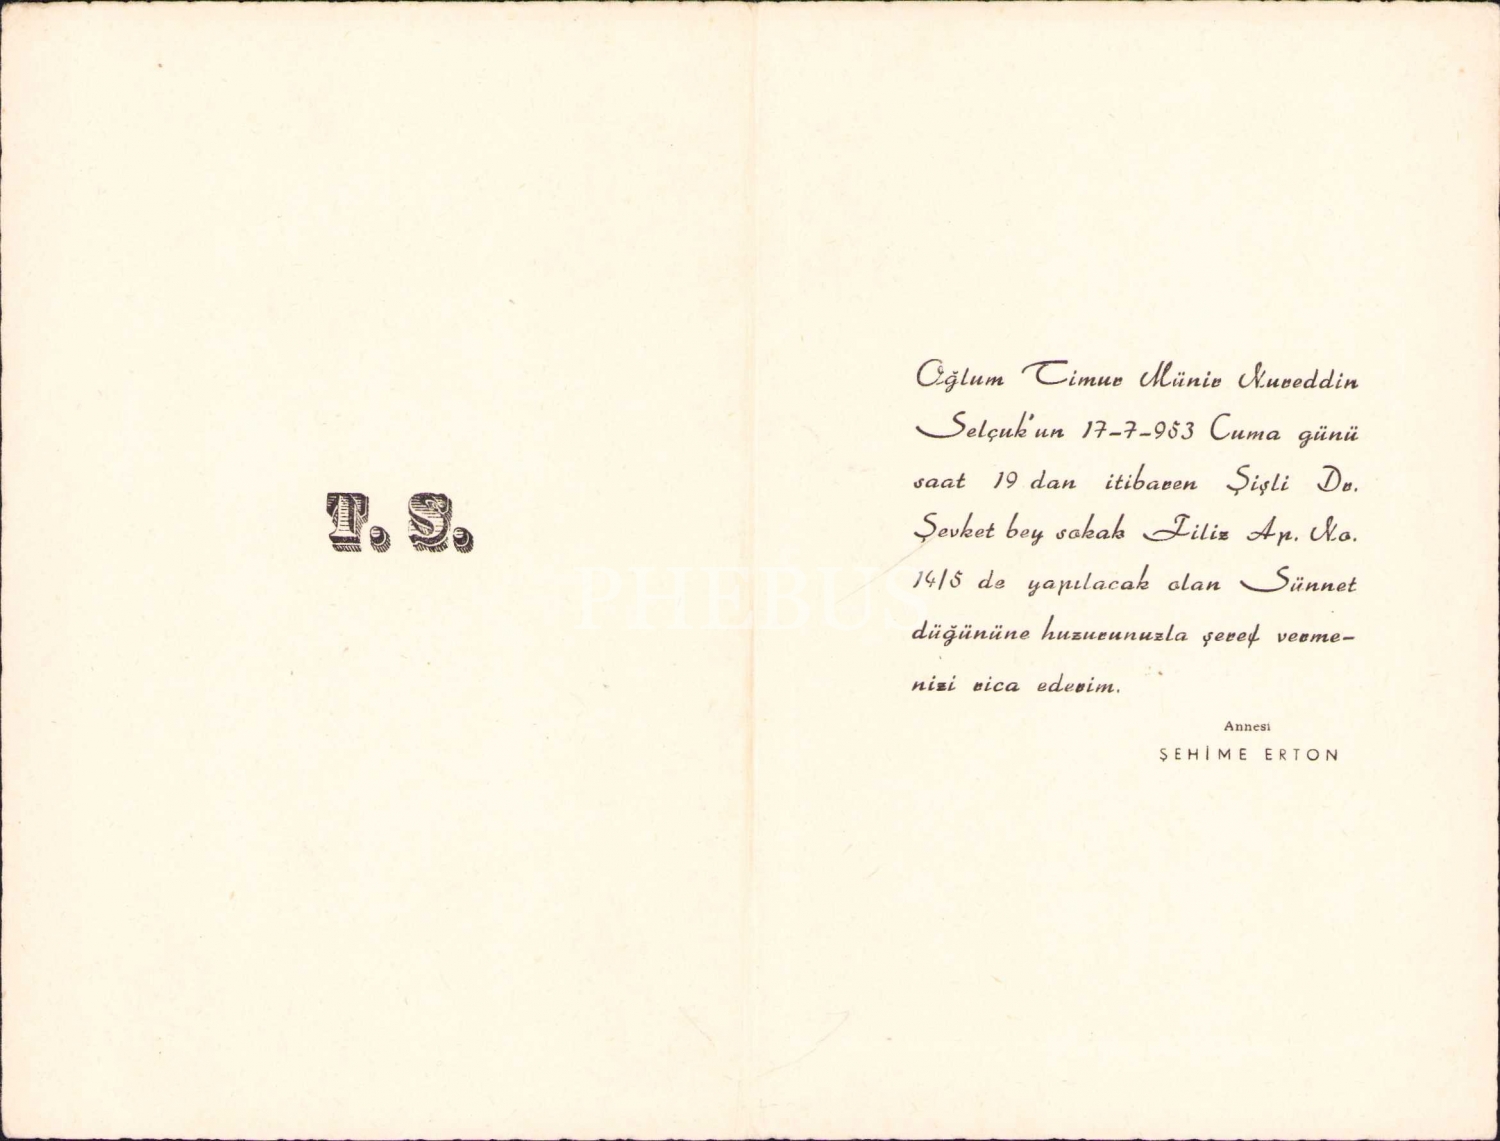 T. S.
Oğlum Timur Münir Nureddin
Selçuk'un 17-7-953 Cuma günü
saat 19 dan itibaren Şişli Dr.
Şevket bey sokak Filiz Ap. No.
14/5 de yapılacak olan Sünnet
düğününe huzurunuzla şeref verme-
nizi rica ederim.
Annesi
ŞEHİME ERTON
PHEBUS